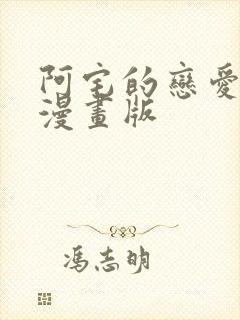 阿宅的戀愛
漫畫版
馮志明